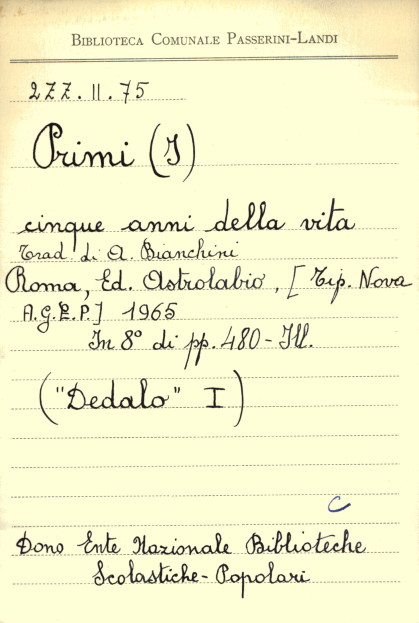 BIBLIOTECA COMUNALE PASSERINI-LANDI
277.II.75
Primi (I)
cinque anni della vita
Trad. di A. Bianchini
Roma, Ed. Astrolabio, [Tip. Nova
A.G.E.P.] 1965
In 8° di pp. 480 - Ill.
("Dedalo" I)
C
Dono Ente Nazionale Biblioteche
Scolastiche-Popolari